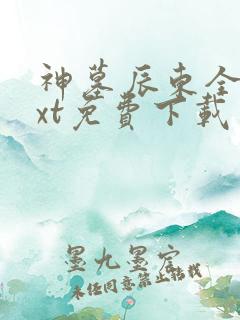 神墓 辰东全
xt免費下載
墨九墨宕
未任同意禁止转载